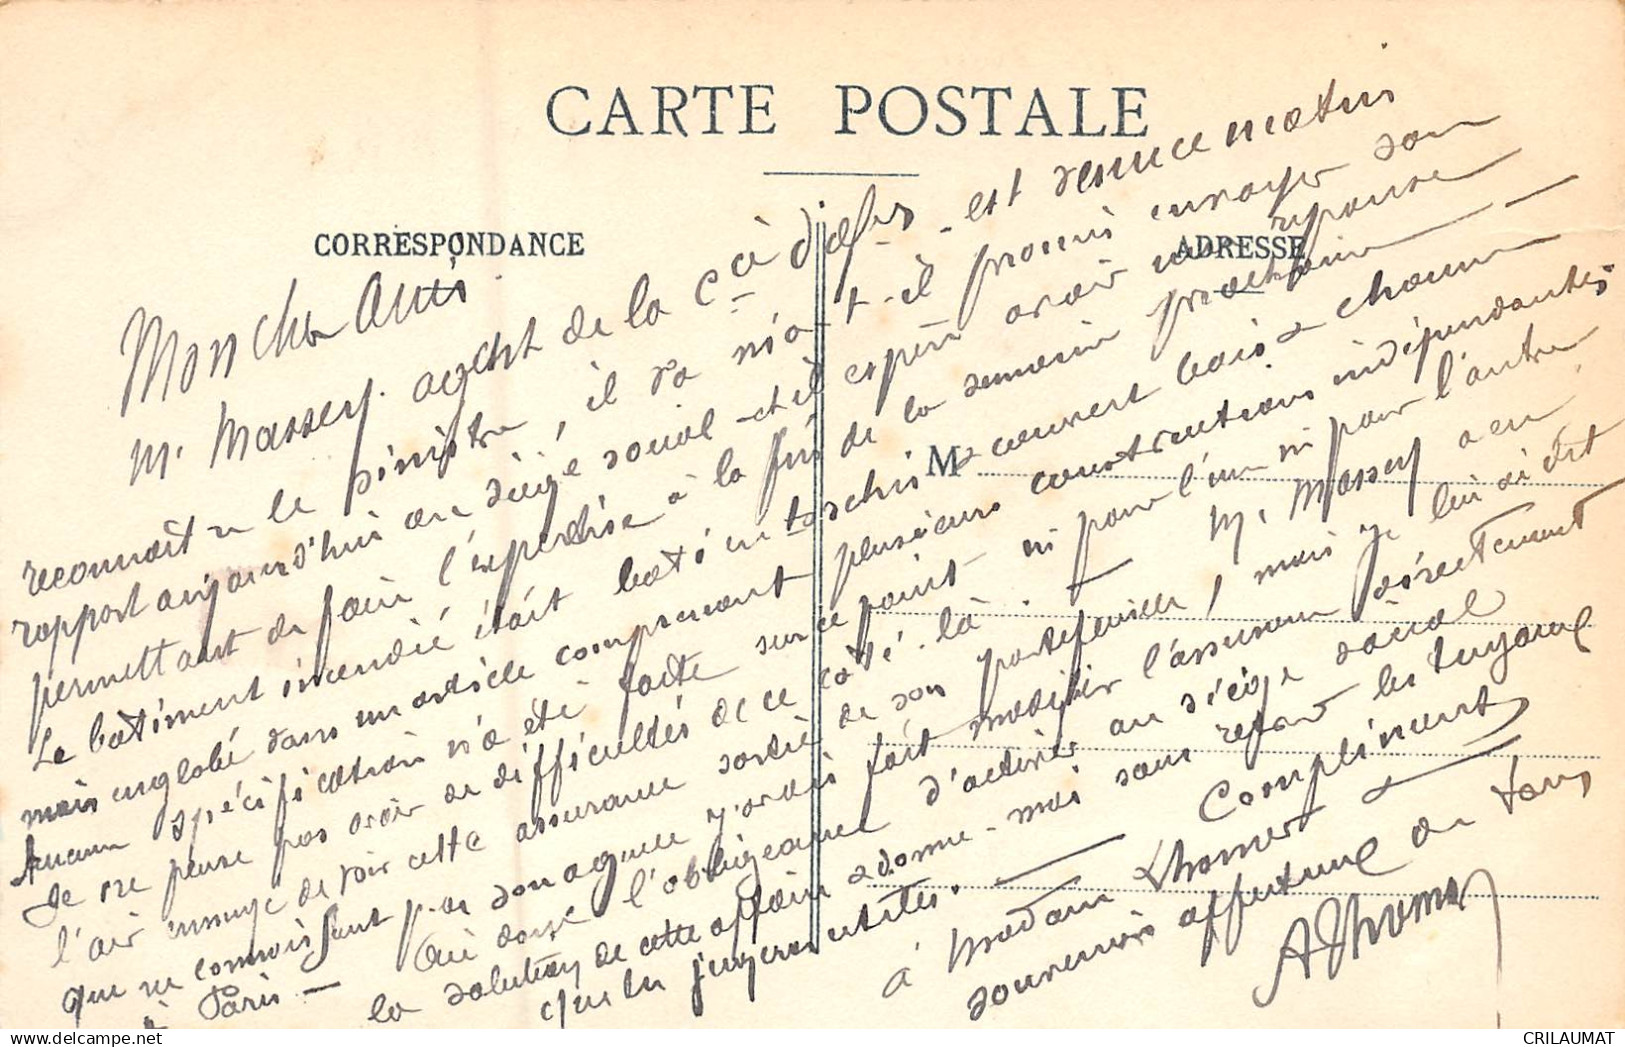 CARTE POSTALE
CORRESPONDANCE
ADRESSE
M
Mon cher Ami
M. Massey agent de la Cie d'ass est venu ce matin
reconnaître le sinistre, il va m'a-t-il promis envoyer son
rapport aujourd'hui au siège social et il espère avoir une réponse
permettant de faire l'expertise à la fin de la semaine prochaine
Le bâtiment incendié était bâti en torchis & couvert bois & chaume
mais englobé dans un article comprenant plusieurs constructions indépendantes
Aucune spécification n'a été faite sur ce point ni pour l'un ni pour l'autre
Je ne pense pas avoir de difficultés de ce côté-là. M. Massey a eu
l'air ennuyé de voir cette assurance sortie de son portefeuille, mais je lui ai dit
que ne connaissant pas son agence j'avais fait modifier l'assurance directement
à Paris — donc l'obligeance d'activer au siège social
la solution de cette affaire & donne-moi sans retard les tuyaux
que tu jugeras utiles. — Compliments
à Madame Lhomer &
souvenirs affectueux de tous
AThomas
CRILAUMAT